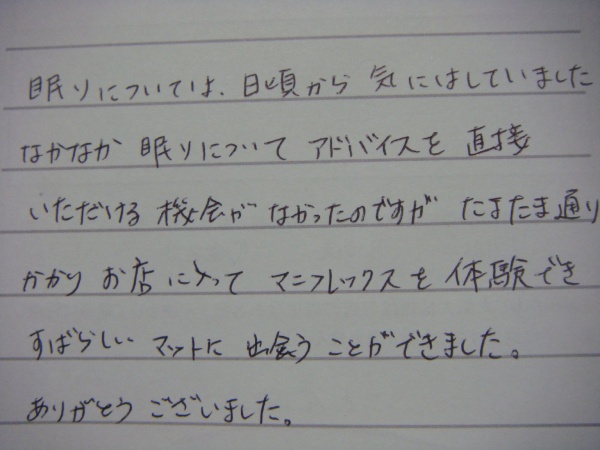 眠りについては、日頃から 気にはしていました
なかなか 眠りについて アドバイスを 直接
いただける 機会が なかったのですが たまたま通り
かかり お店に入って マニフレックスを 体験でき
すばらしい マットに 出会う ことができました。
ありがとう ございました。